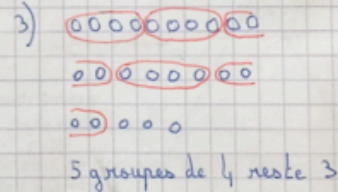 3)
5 groupes de 4 reste 3